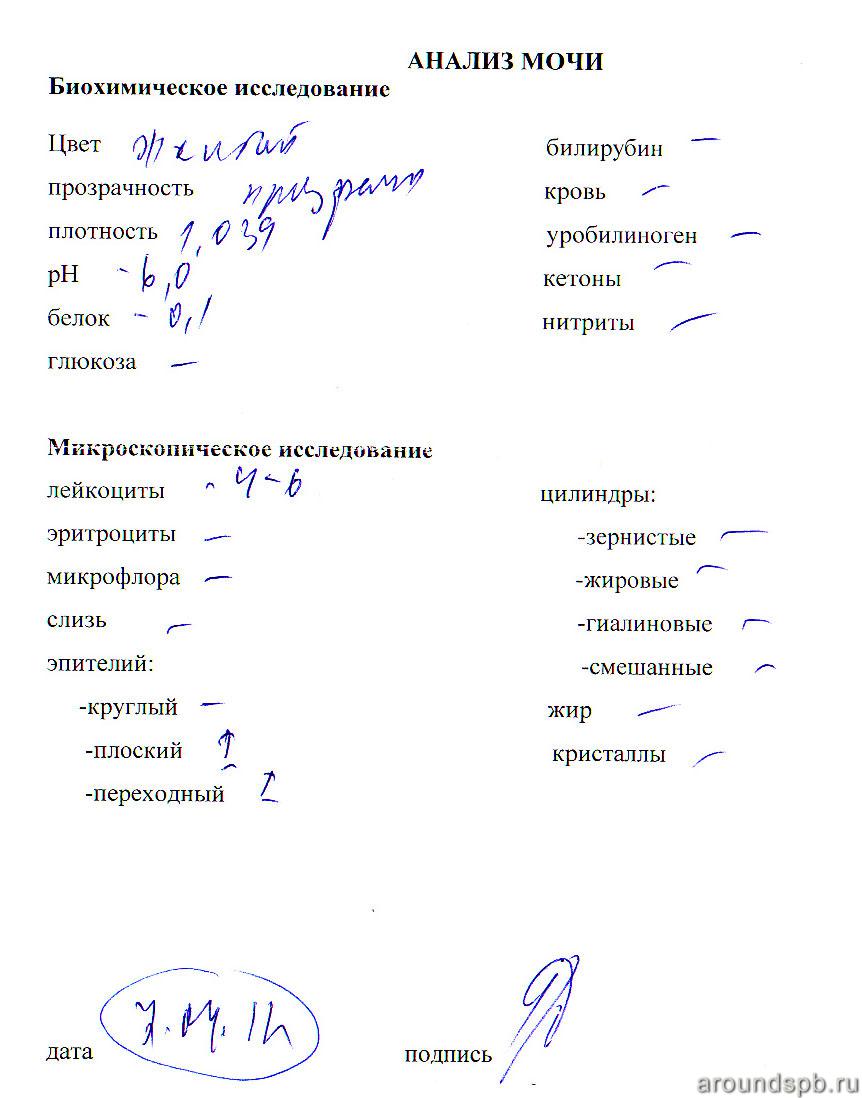 АНАЛИЗ МОЧИ
Биохимическое исследование
Цвет желтый
прозрачность прозрачн
плотность 1,039
pH - 6,0
белок - 0,1
глюкоза —
билирубин —
кровь —
уробилиноген —
кетоны —
нитриты —
Микроскопическое исследование
лейкоциты - 4-6
эритроциты —
микрофлора —
слизь —
эпителий:
-круглый —
-плоский
-переходный
цилиндры:
-зернистые —
-жировые —
-гиалиновые —
-смешанные —
жир —
кристаллы —
дата 7.04.12
подпись
aroundspb.ru